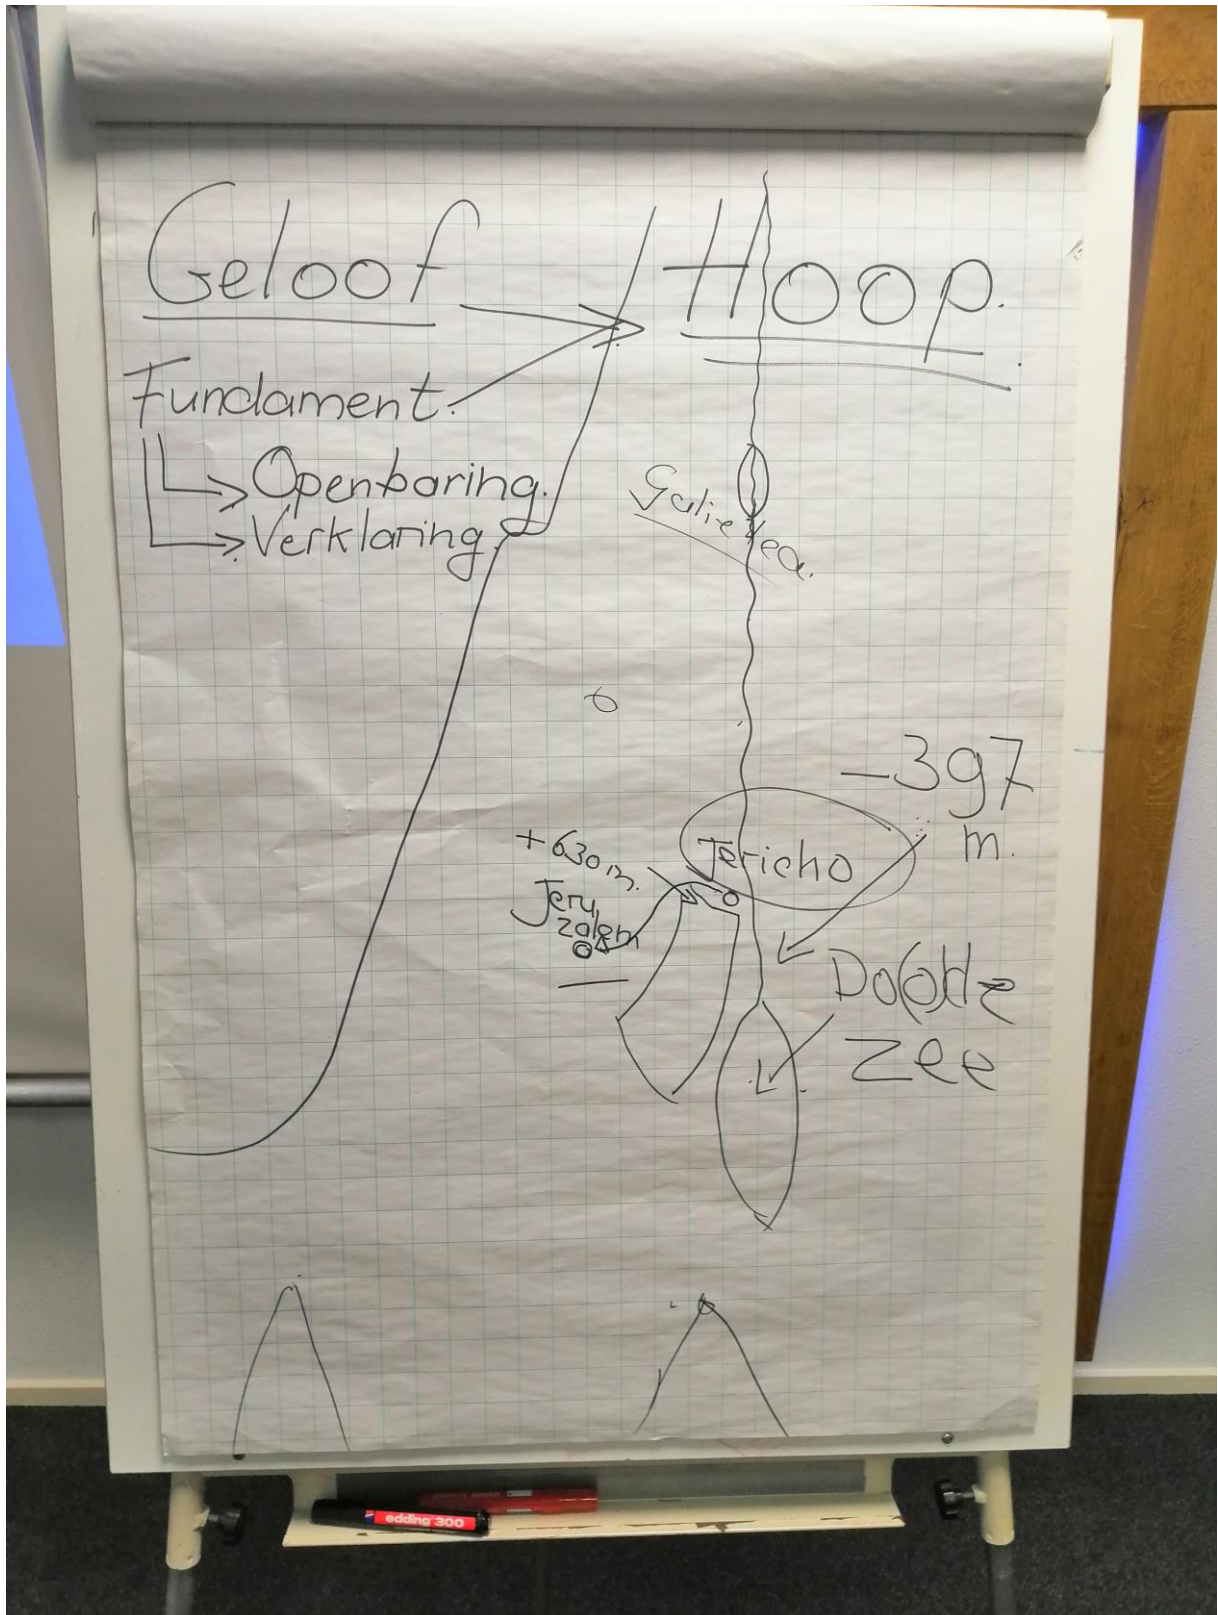 Geloof
Hoop.
Fundament.
Openbaring.
Verklaring
-397
m.
Jericho
+630 m.
Jeru
zalem
Do(o)de
zee
edding 300